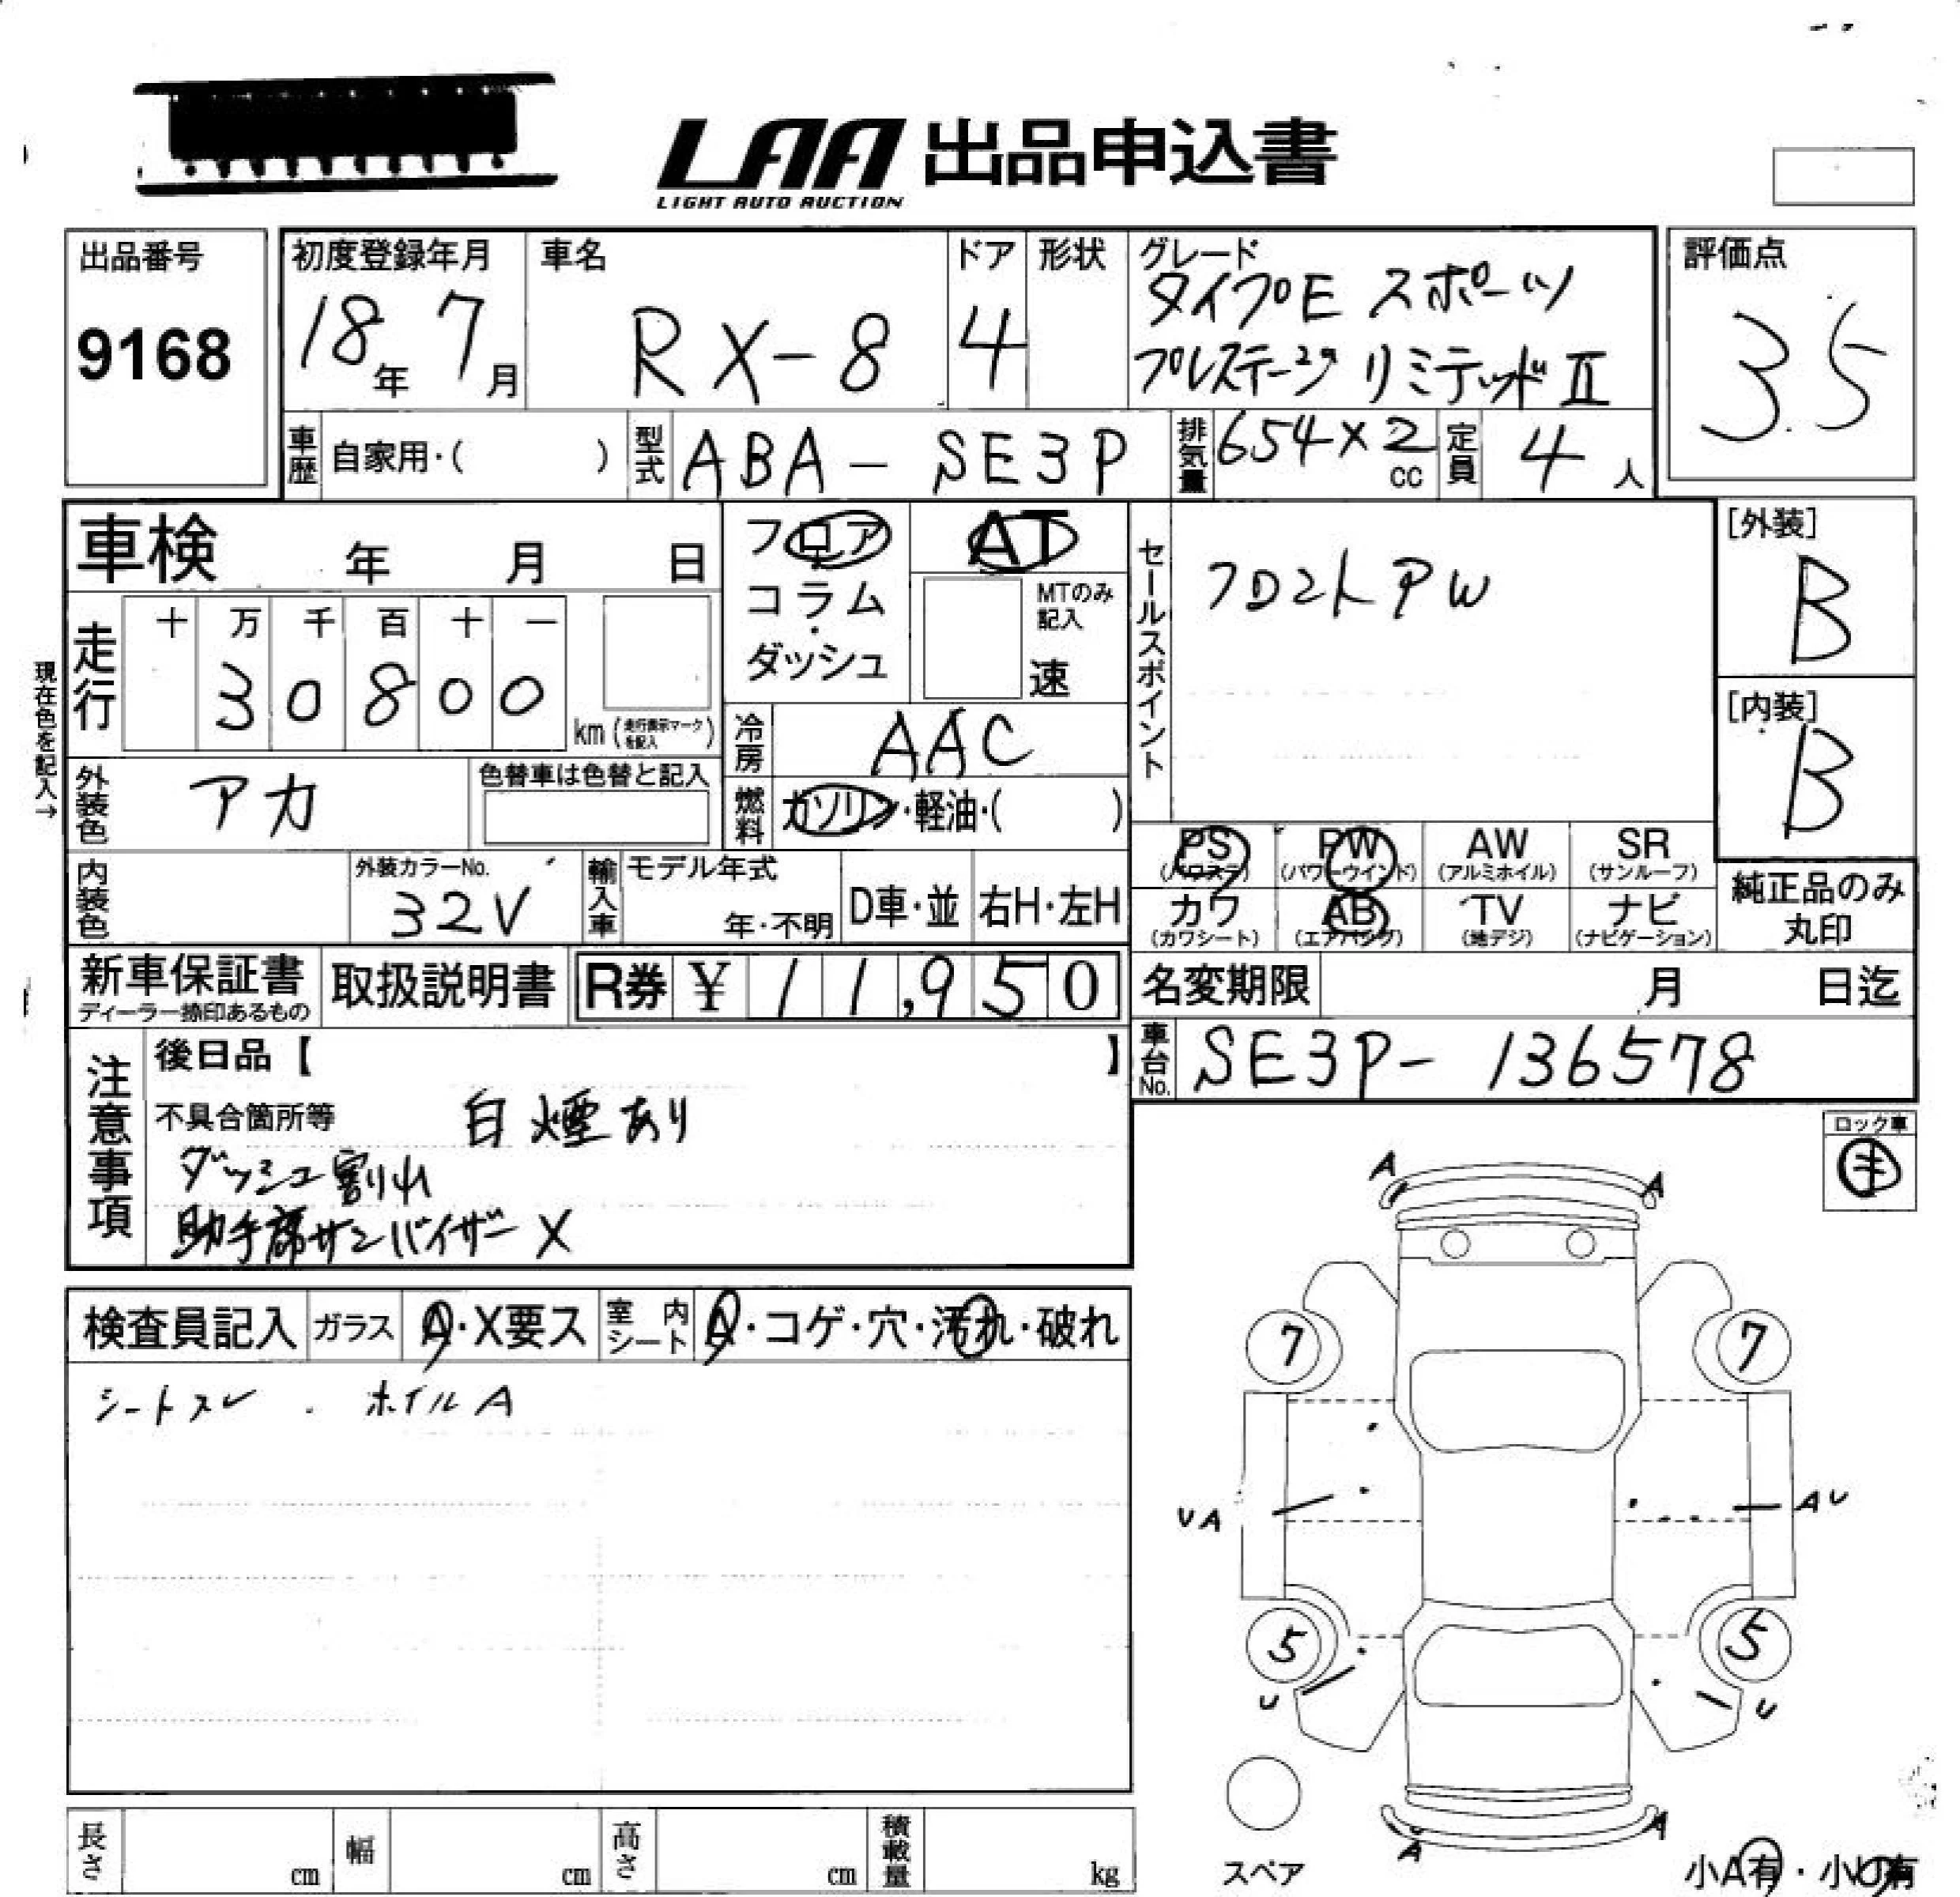 LAA 出品申込書
LIGHT AUTO AUCTION
出品番号
9168
初度登録年月
18年 7月
車名
RX-8
ドア
4
形状
グレード
タイプE スポーツ
プレステージ リミテッドⅡ
評価点
3.5
車歴 自家用・( )
型式 ABA-SE3P
排気量 654×2 cc
定員 4人
車検 年 月 日
フロア
コラム
・
ダッシュ
AT
MTのみ
記入
速
セールスポイント
フロントPW
[外装]
B
[内装]
B
現在色を記入→
走行 十 万 千 百 十 一
3 0 8 0 0
km (走行表示マークを記入)
冷房 AAC
燃料 ガソリン・軽油・( )
外装色 アカ
色替車は色替と記入
内装色
外装カラーNo.
32V
輸入車 モデル年式
年・不明
D車・並 右H・左H
PS (パワステ)
PW (パワーウインド)
AW (アルミホイル)
SR (サンルーフ)
カワ (カワシート)
AB (エアバック)
TV (地デジ)
ナビ (ナビゲーション)
純正品のみ
丸印
新車保証書
ディーラー捺印あるもの
取扱説明書
R券 ¥ 11,950
名変期限 月 日迄
車台No. SE3P-136578
注意事項
後日品【 】
不具合箇所等 白煙あり
ダッシュ割れ
助手席サンバイザーX
ロック車
キ
検査員記入 ガラス A・X要ス 室内シート A・コゲ・穴・汚れ・破れ
シートスレ . ホイルA
A A
7 7
UA AU
5 5
U U
A A
スペア
小A有・小U有
長さ cm 幅 cm 高さ cm 積載量 kg